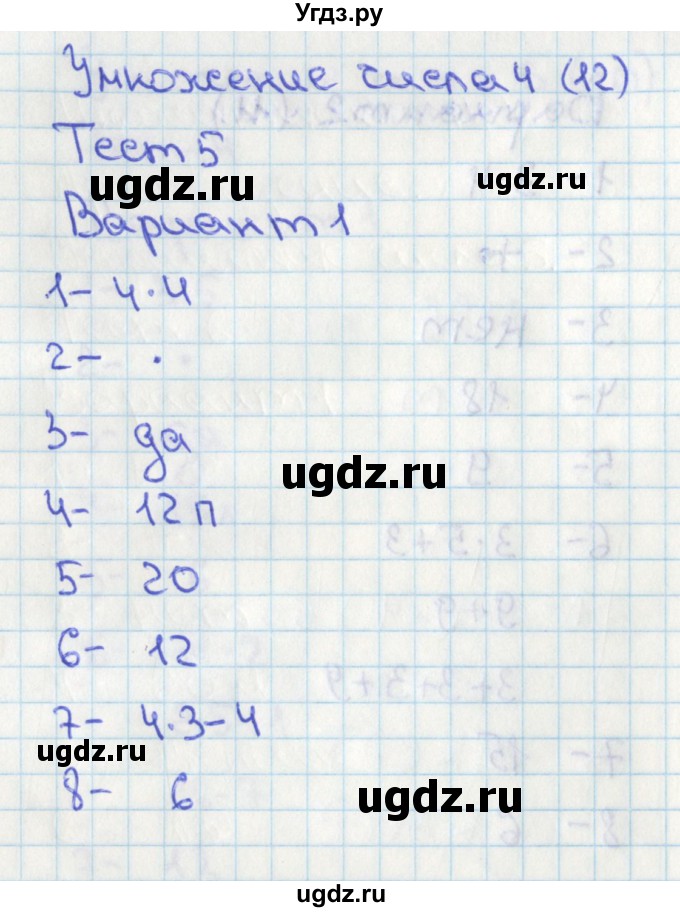 Угдз.ру
Умножение числа 4 (12)
Тест 5
ugdz.ru
ugdz.ru
Вариант 1
1- 4·4
2- ·
3- да
ugdz.ru
4- 12 п
5- 20
6- 12
7- 4·3-4
ugdz.ru
8- 6
ugdz.ru
ugdz.ru